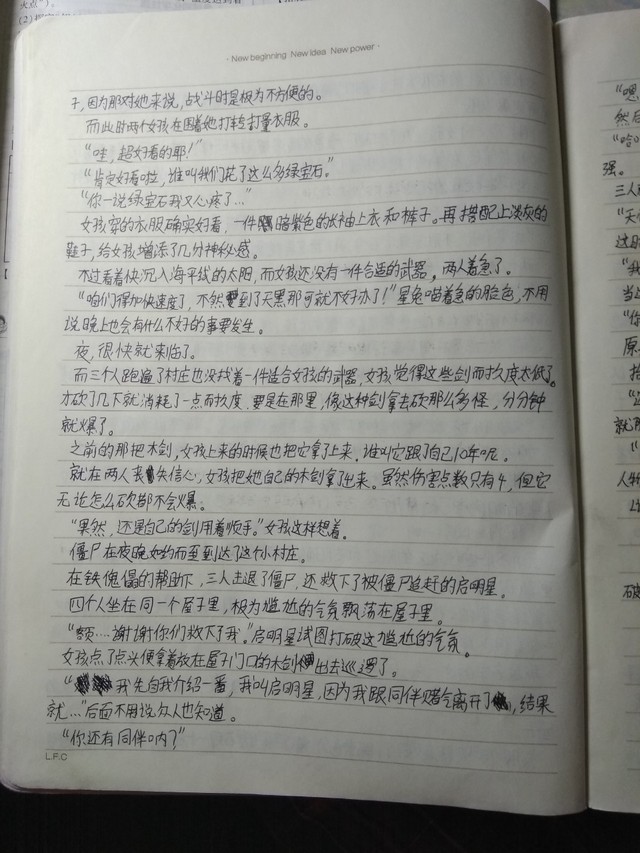 · New beginning New Idea New power ·
子，因为那对她来说，战斗时是极为不方便的。
而此时两个女孩在围着她打转打量衣服。
“哇，超好看的耶！”
“肯定好看啦，谁叫我们花了这么多绿宝石。”
“你一说绿宝石我又心疼了…”
女孩穿的衣服确实好看，一件暗紫色的长袖上衣和裤子。再搭配上淡灰的
鞋子，给女孩增添了几分神秘感。
不过看着快沉入海平线的太阳，而女孩还没有一件合适的武器，两人着急了。
“咱们得加快速度了，不然到了天黑那可就不好办了！”星兔喵着急的脸色，不用
说晚上也会有什么不好的事要发生。
夜，很快就来临了。
而三个人跑遍了村庄也没找着一件适合女孩的武器，女孩觉得这些剑耐久度太低了。
才砍了几下就消耗了一点耐久度，要是在那里，像这种剑拿去砍那么多怪，分分钟
就爆了。
之前的那把木剑，女孩上来的时候也把它拿了上来，谁叫它跟了自己10年呢。
就在两人丧失信心，女孩把她自己的木剑拿了出来。虽然伤害点数只有4，但它
无论怎么砍都不会爆。
“果然，还是自己的剑用着顺手。”女孩这样想着。
僵尸在夜晚如约而至到达了这个小村庄。
在铁傀儡的帮助下，三人击退了僵尸，还救下了被僵尸追赶的启明星。
四个人坐在同一个屋子里，极为尴尬的气氛飘荡在屋子里。
“额…谢谢你们救下了我。”启明星试图打破这尴尬的气氛。
女孩点了点头便拿着放在屋子门口的木剑出去巡逻了。
“我先自我介绍一番，我叫启明星，因为我跟同伴赌气离开了，结果
就…”后面不用说众人也知道。
“你还有同伴呐？”
L.F.C
“嗯
然后
“哈
强。
三人
“天
这时
“我
当
“你
原
“这
就
人物